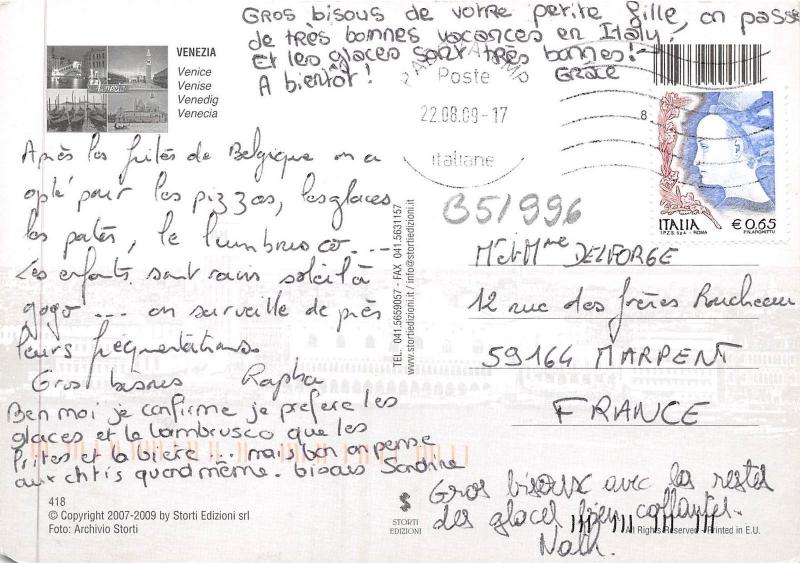 Gros bisous de votre petite fille, on passe
de très bonnes vacances en Italy,
Et les glaces sont très bonnes!
A bientôt! Grâce
VENEZIA
Venice
Venise
Venedig
Venecia
Poste
22.08.09-17
italiane
8
ITALIA
€ 0,65
I.P.Z.S. S.p.A. - ROMA
Après les frites de Belgique on a
opté pour les pizzas, les glaces
les pates, le lumbrusco....
Les enfants sont ravis soleil à
gogo .... on surveille de près
leurs fréquentations
Gros bisous Rapha
Ben moi je confirme je préfère les
glaces et le lambrusco que les
frites et la bière ... mais bon on pense
aux chtis quand même. bisous Sandrine
TEL. 041.5659057 - FAX 041.5631157
www.storiedizioni.it / info@storiedizioni.it
B51996
Mr et Mme DELFORGE
12 rue des frères Roucheaux
59164 MARPENT
FRANCE
Gros bisoux avec les restes
des glaces bien
Nath.
418
© Copyright 2007-2009 by Storti Edizioni srl
Foto: Archivio Storti
S
STORTI
EDIZIONI
All Rights Reserved - Printed in E.U.